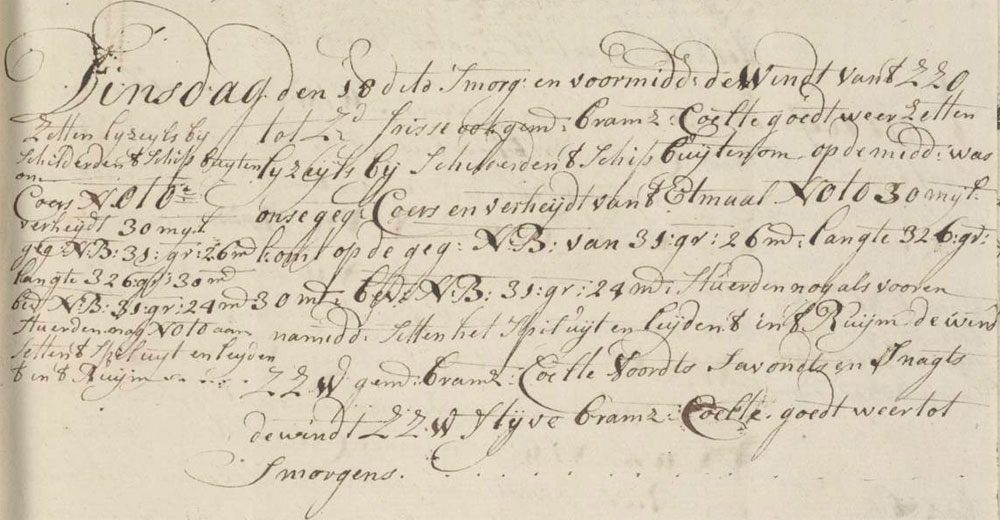 Dinsdag den 18 dito Smorg: en voormidd: de Windt van't ZZO
tot Zd frisse ook gemd: bramz: Coelte goedt weer Zetten
lyzeyls by Schilderden't Schip buyten om op de midd: was
onse geg: Coers en verheydt van't Etmaal NOtO 30 myl:
komt op de geg: N:B: van 31: gr: 26 md: langte 326: gr:
30 mt: bede N:B: 31: gr: 24 md: Stuerden nog als vooren
namidd: Setten het Spil uyt en leyden't in't Ruym de wind
ZZWd gemd: bramz: Coelte Voordts Savondts en Snagts
de windt ZZW Styve bramz: Coelte. goedt weer tot
Smorgens.
Zetten lyzeyls by
Schilderden't Schip buyten
om
Coers NOtO
verheydt 30 myl
geg N:B: 31: gr: 26 md
langte 326: gr: 30 md
bed N:B: 31: gr: 24 md
Stuerden nog NOtO aan
Setten't Spil uyt en leyden
't in't Ruym